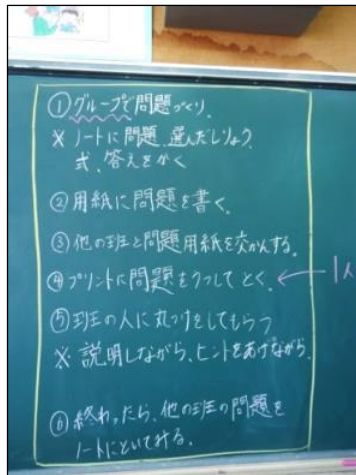 ①グループで問題づくり.
※ノートに問題、選んだしりょう
式、答えをかく
②用紙に問題を書く。
③他の班と問題用紙を交かんする。
④プリントに問題をうつしてとく。←1人
⑤班の人に丸つけをしてもらう
※説明しながら、ヒントをあげながら.
⑥終わったら、他の班の問題を
ノートにといてみる。